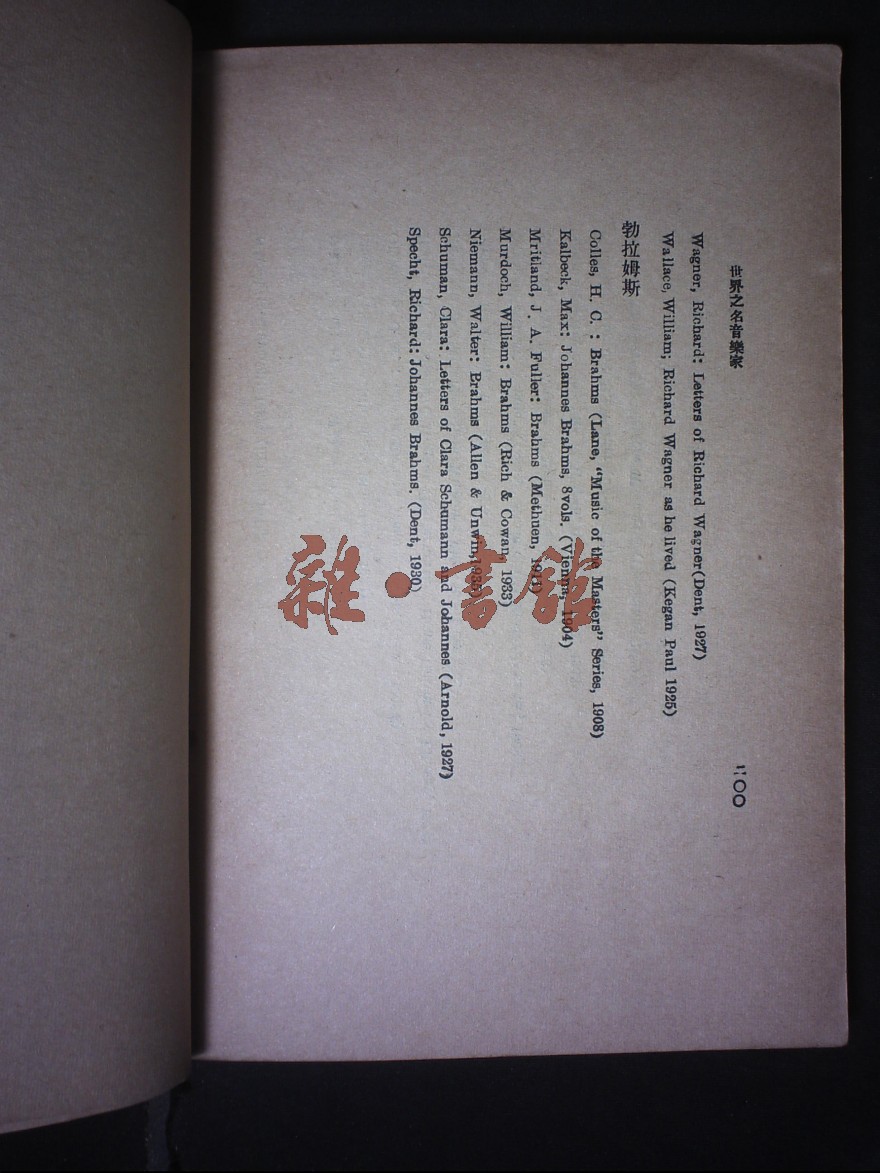 世界之名音樂家
二〇〇
Wagner, Richard: Letters of Richard Wagner(Dent, 1927)
Wallace, William; Richard Wagner as he lived (Kegan Paul 1925)
勃拉姆斯
Colles, H. C. : Brahms (Lane, "Music of the Masters" Series, 1908)
Kalbeck, Max: Johannes Brahms, 8vols. (Vienna, 1904)
Mritland, J. A. Fuller: Brahms (Methuen, 1911)
Murdoch, William: Brahms (Rich & Cowan, 1933)
Niemann, Walter: Brahms (Allen & Unwin, 1935)
Schuman, Clara: Letters of Clara Schumann and Johannes (Arnold, 1927)
Specht, Richard: Johannes Brahms. (Dent, 1930)
雜·書館